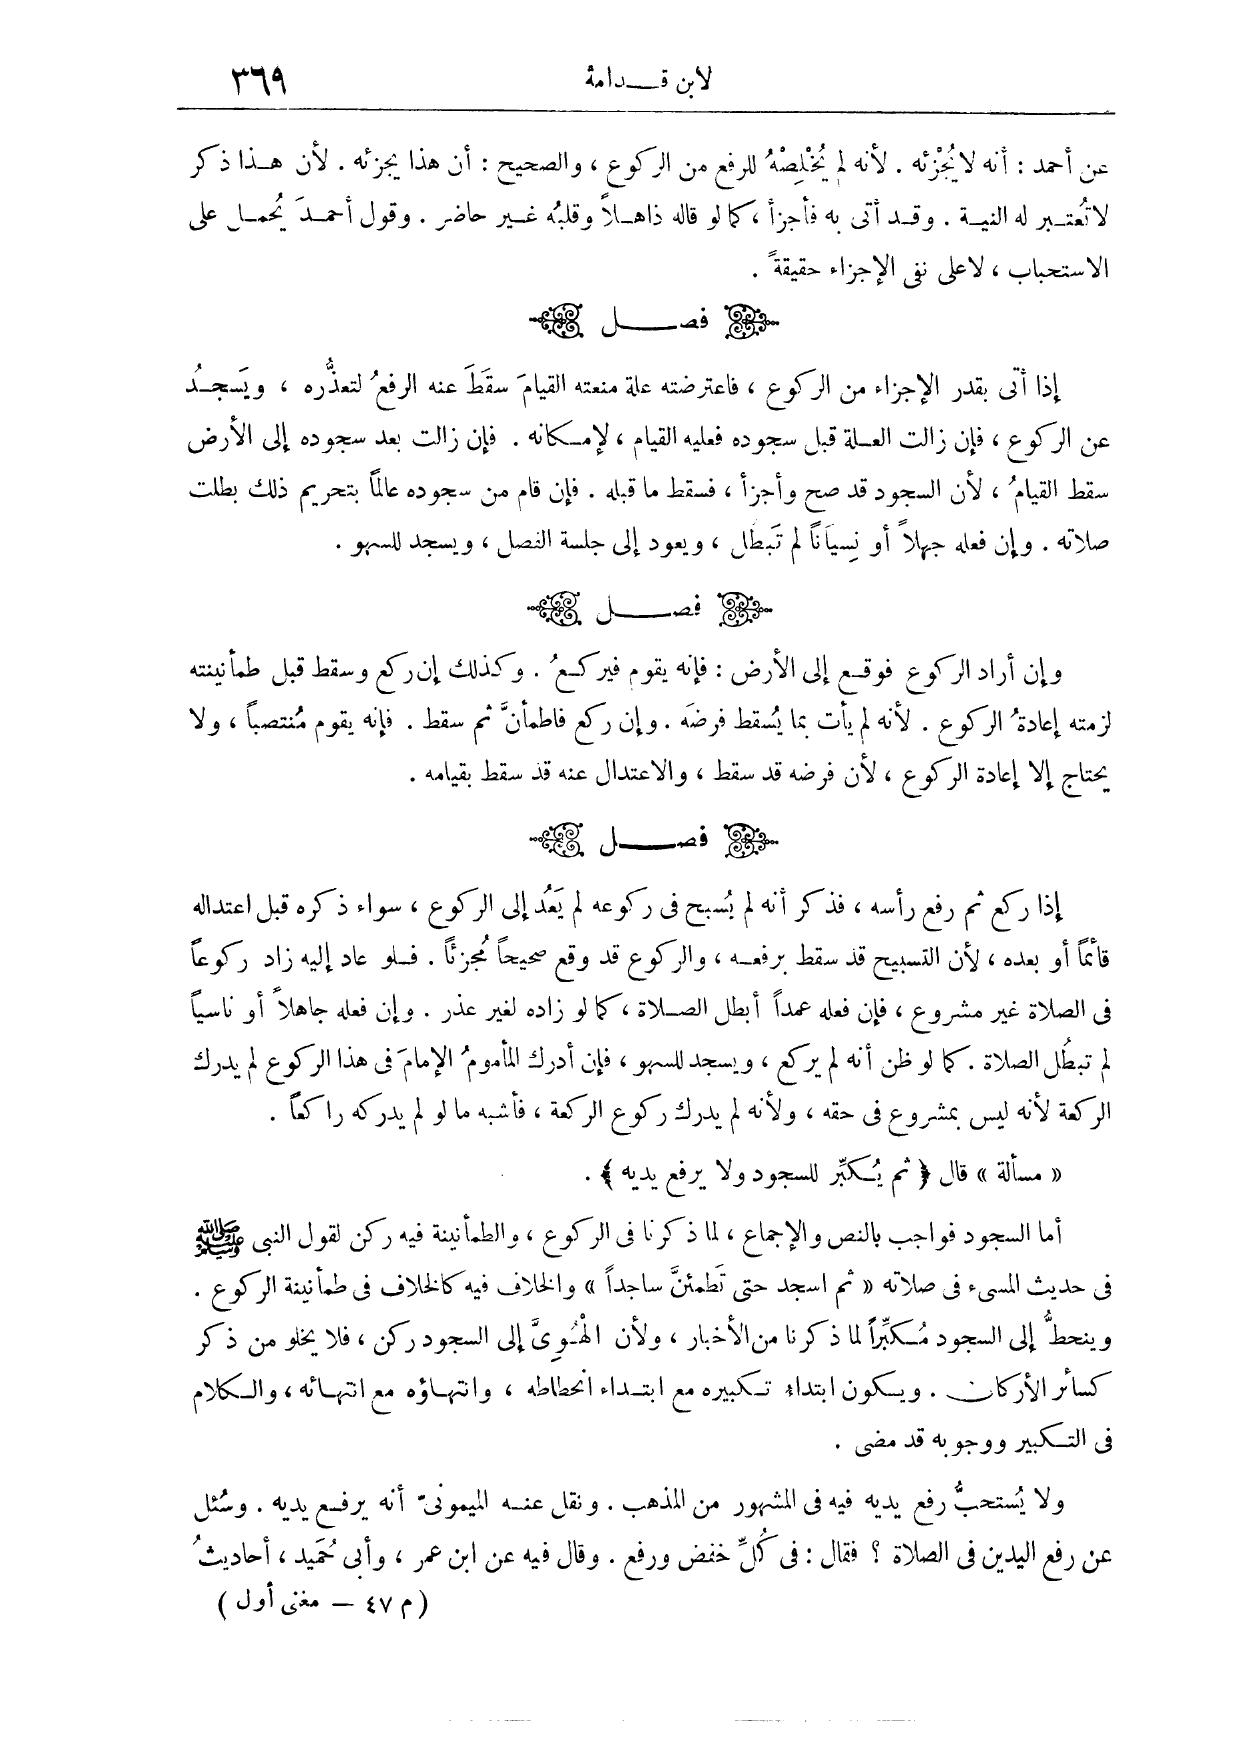 لابن قـدامة ٣٦٩
عن أحمد : أنه لا يُجْزئه . لأنه لم يُخْلِصْهُ للرفع من الركوع ، والصحيح : أن هذا يجزئه . لأن هـذا ذكر
لا تُعتـبر له النيـة . وقـد أتى به فأجزأ ، كما لو قاله ذاهـلاً وقلبُه غـير حاضر . وقول أحمـدَ يُحمـل على
الاستحباب ، لا على نفى الإجزاء حقيقةً .
فصـل
إذا أتى بقدر الإجزاء من الركوع ، فاعترضته علة منعته القيامَ سقَطَ عنه الرفعُ لتعذُّره ، ويَسجـدُ
عن الركوع ، فإن زالت العـلة قبل سجوده فعليه القيام ، لإمـكانه . فإن زالت بعد سجوده إلى الأرض
سقط القيامُ ، لأن السجود قد صح وأجزأ ، فسقط ما قبله . فإن قام من سجوده عالماً بتحريم ذلك بطلت
صلاته . وإن فعله جهلاً أو نِسياناً لم تَبطل ، ويعود إلى جلسة الفصل ، ويسجد للسهو .
فصـل
وإن أراد الركوع فوقـع إلى الأرض : فإنه يقوم فيركـعُ . وكذلك إن ركع وسقط قبل طمأنينته
لزمته إعادةُ الركوع . لأنه لم يأت بما يُسقط فرضَه . وإن ركع فاطمأنَّ ثم سقط . فإنه يقوم مُنتصباً ، ولا
يحتاج إلا إعادة الركوع ، لأن فرضه قد سقط ، والاعتدال عنه قد سقط بقيامه .
فصـل
إذا ركع ثم رفع رأسه ، فذكر أنه لم يُسبح فى ركوعه لم يَعُد إلى الركوع ، سواء ذكره قبل اعتداله
قائماً أو بعده ، لأن التسبيح قد سقط برفعـه ، والركوع قد وقع صحيحاً مُجزئاً . فـلو عاد إليه زاد ركوعاً
فى الصلاة غير مشروع ، فإن فعله عمداً أبطل الصـلاة ، كما لو زاده لغير عذر . وإن فعله جاهلاً أو ناسياً
لم تبطُل الصلاة . كما لو ظن أنه لم يركع ، ويسجد للسهو ، فإن أدرك المأمومُ الإمامَ فى هذا الركوع لم يدرك
الركعة لأنه ليس بمشروع فى حقه ، ولأنه لم يدرك ركوع الركعة ، فأشبه ما لو لم يدركه راكعاً .
« مسألة » قال ﴿ ثم يُكبِّر للسجود ولا يرفع يديه ﴾ .
أما السجود فواجب بالنص والإجماع ، لما ذكرنا فى الركوع ، والطمأنينة فيه ركن لقول النبى ﷺ
فى حديث المسىء فى صلاته « ثم اسجد حتى تَطمئنَّ ساجداً » والخلاف فيه كالخلاف فى طمأنينة الركوع .
وينحطُّ إلى السجود مُـكبِّراً لما ذكرنا من الأخبار ، ولأن الْهُوِىَّ إلى السجود ركن ، فلا يخلو من ذكر
كسائر الأركان . ويـكون ابتداء تـكبيره مع ابتـداء انحطاطه ، وانتهـاؤه مع انتهـائه ، والـكلام
فى التـكبير ووجوبه قد مضى .
ولا يُستحبُّ رفع يديه فيه فى المشهور من المذهب . ونقل عنـه الميمونىّ أنه يرفـع يديه . وسُئل
عن رفع اليدين فى الصلاة ؟ فقال : فى كُلِّ خفض ورفع . وقال فيه عن ابن عمر ، وأبى حُمَيد ، أحاديثُ
( م ٤٧ – مغنى أول )